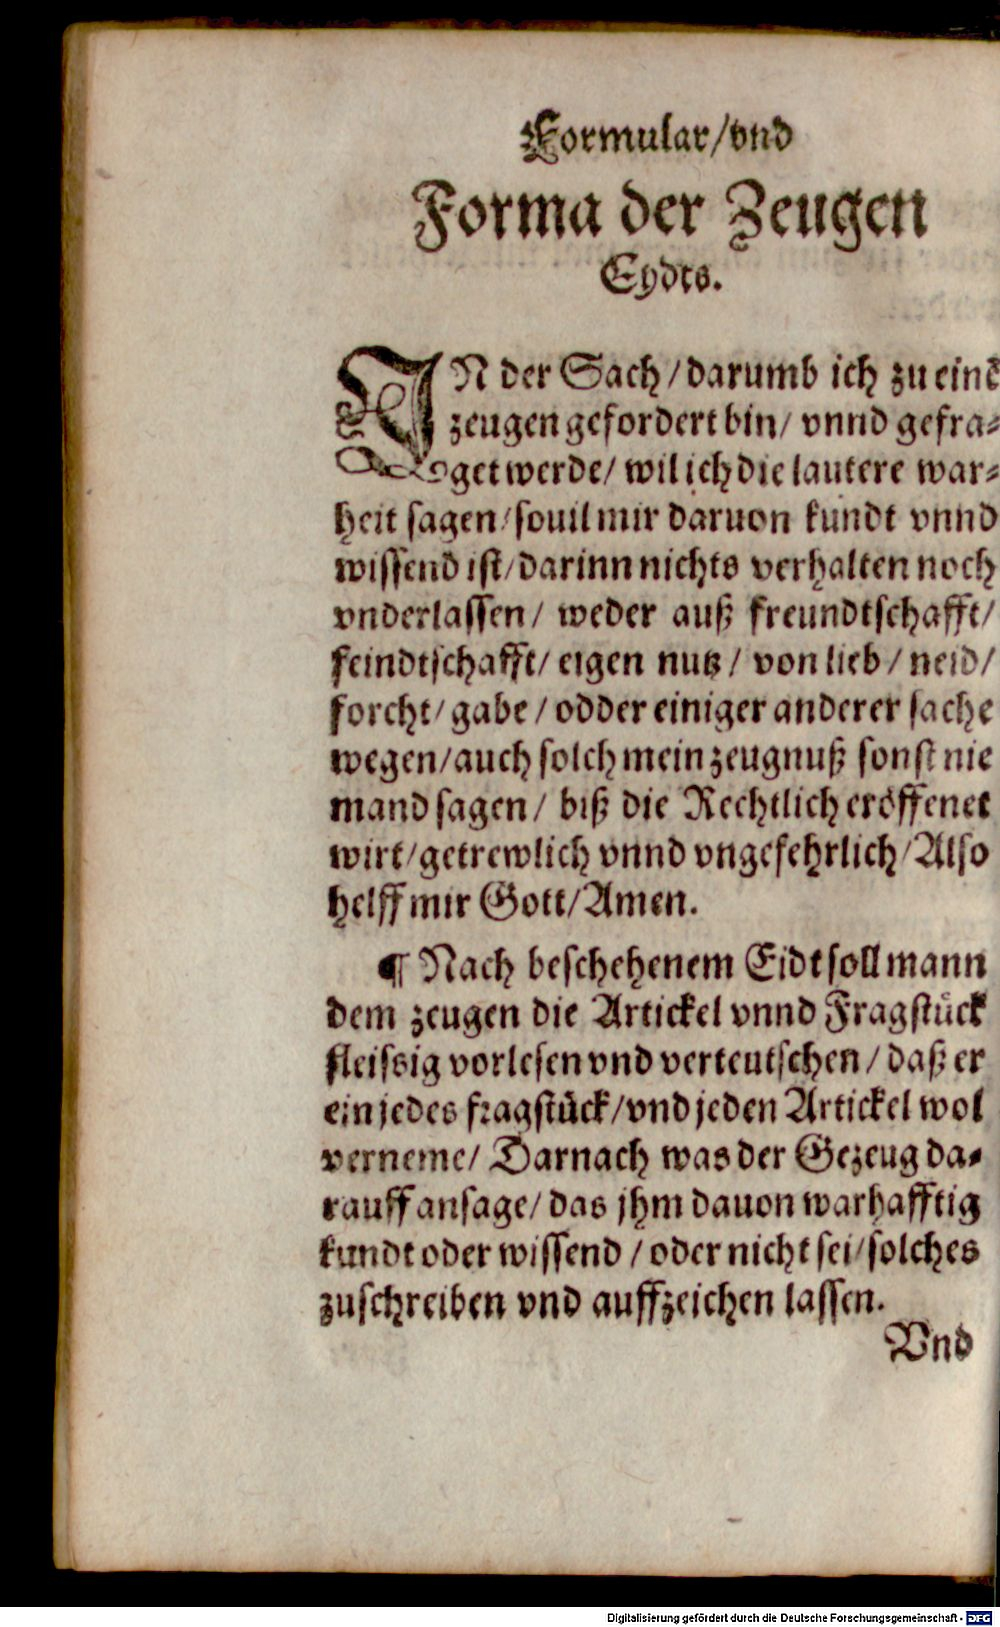 Formular/vnd
Forma der Zeugen
Eydts.
IN der Sach/darumb ich zu einē
zeugen gefordert bin/ vnnd gefra-
get werde/ wil ich die lautere war-
heit sagen/souil mir daruon kundt vnnd
wissend ist/darinn nichts verhalten noch
vnderlassen/ weder auß freundtschafft/
feindtschafft/ eigen nutz/ von lieb/ neid/
forcht/gabe/odder einiger anderer sache
wegen/auch solch mein zeugnuß sonst nie
mand sagen/ biß die Rechtlich eröffenet
wirt/getrewlich vnnd vngefehrlich/Also
helff mir Gott/Amen.
¶ Nach beschehenem Eidt soll mann
dem zeugen die Artickel vnnd Fragstück
fleissig vorlesen vnd verteutschen/daß er
ein jedes fragstück/vnd jeden Artickel wol
verneme/ Darnach was der Gezeug da-
rauff ansage/das jhm dauon warhafftig
kundt oder wissend/oder nicht sei/solches
zuschreiben vnd auffzeichen lassen.
Vnd
Digitalisierung gefördert durch die Deutsche Forschungsgemeinschaft - DFG